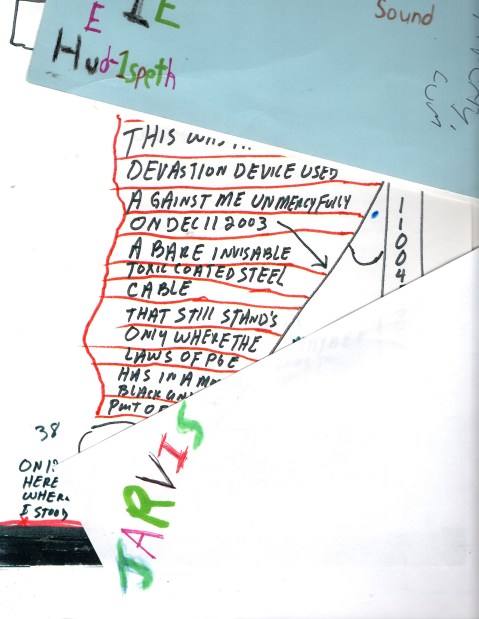 E I E
Sound
Hud-1speth
THIS
DEVASTION DEVICE USED
A GAINST ME UNMERCYFULLY
ON DEC 11 2003
A BARE INVISABLE
TOXIC COATED STEEL
CABLE
THAT STILL STAND'S
ONLY WHERE THE
LAWS OF PGE
HAS IN A
BLACK
1
1
0
0
4
38
HERE
WHER
I STOOD
JARVIS